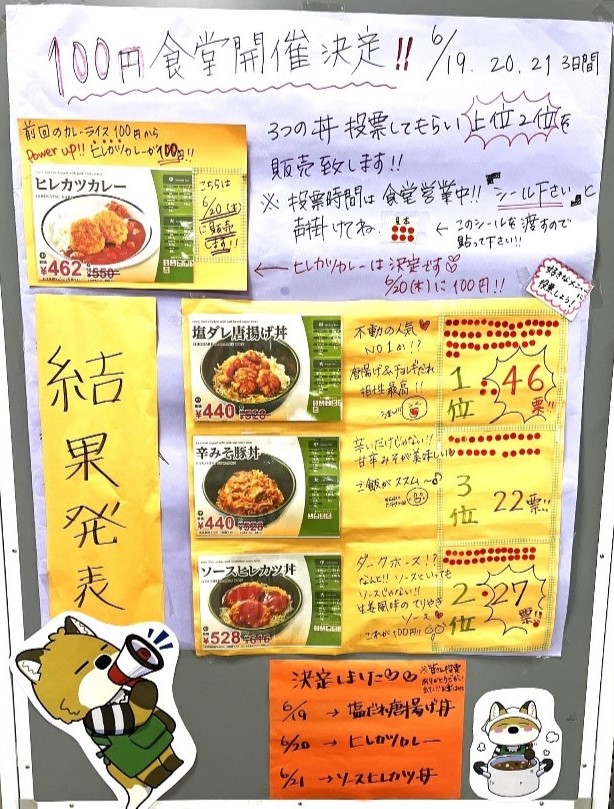 100円食堂開催決定!! 6/19.20.21 3日間
3つの丼投票してもらい上位2位を
販売致します!!
※投票時間は食堂営業中!!「シール下さい」と
声掛けてね
見本
← このシールを渡すので
貼って下さい!!
前回のカレーライス100円から
Power up!! ヒレカツカレーが100円!!
ヒレカツカレー
¥462 ¥550
こちらは
6/20(木)
に販売
します!!
← ヒレカツカレーは決定です♡
6/20(木)に100円!!
好きなメニューに
投票しよう!
結果発表
塩ダレ唐揚げ丼
¥440 ¥528
不動の人気♥
NO1か!?
相性最高!!
1位 46票!!
辛みそ豚丼
¥440 ¥528
辛いだけじゃない!!
甘辛みそが美味しい
ご飯がススム～♂
3位 22票!!
ソースヒレカツ丼
¥528 ¥616
ダークホース!?
なんと!! ソースといっても
ソースじゃない!!
生姜風味のてりやき
ソース♥
これが100円!?
2位 27票!!
決定しました♡♡
6/19 → 塩だれ唐揚げ丼
6/20 → ヒレカツカレー
6/21 → ソースヒレカツ丼